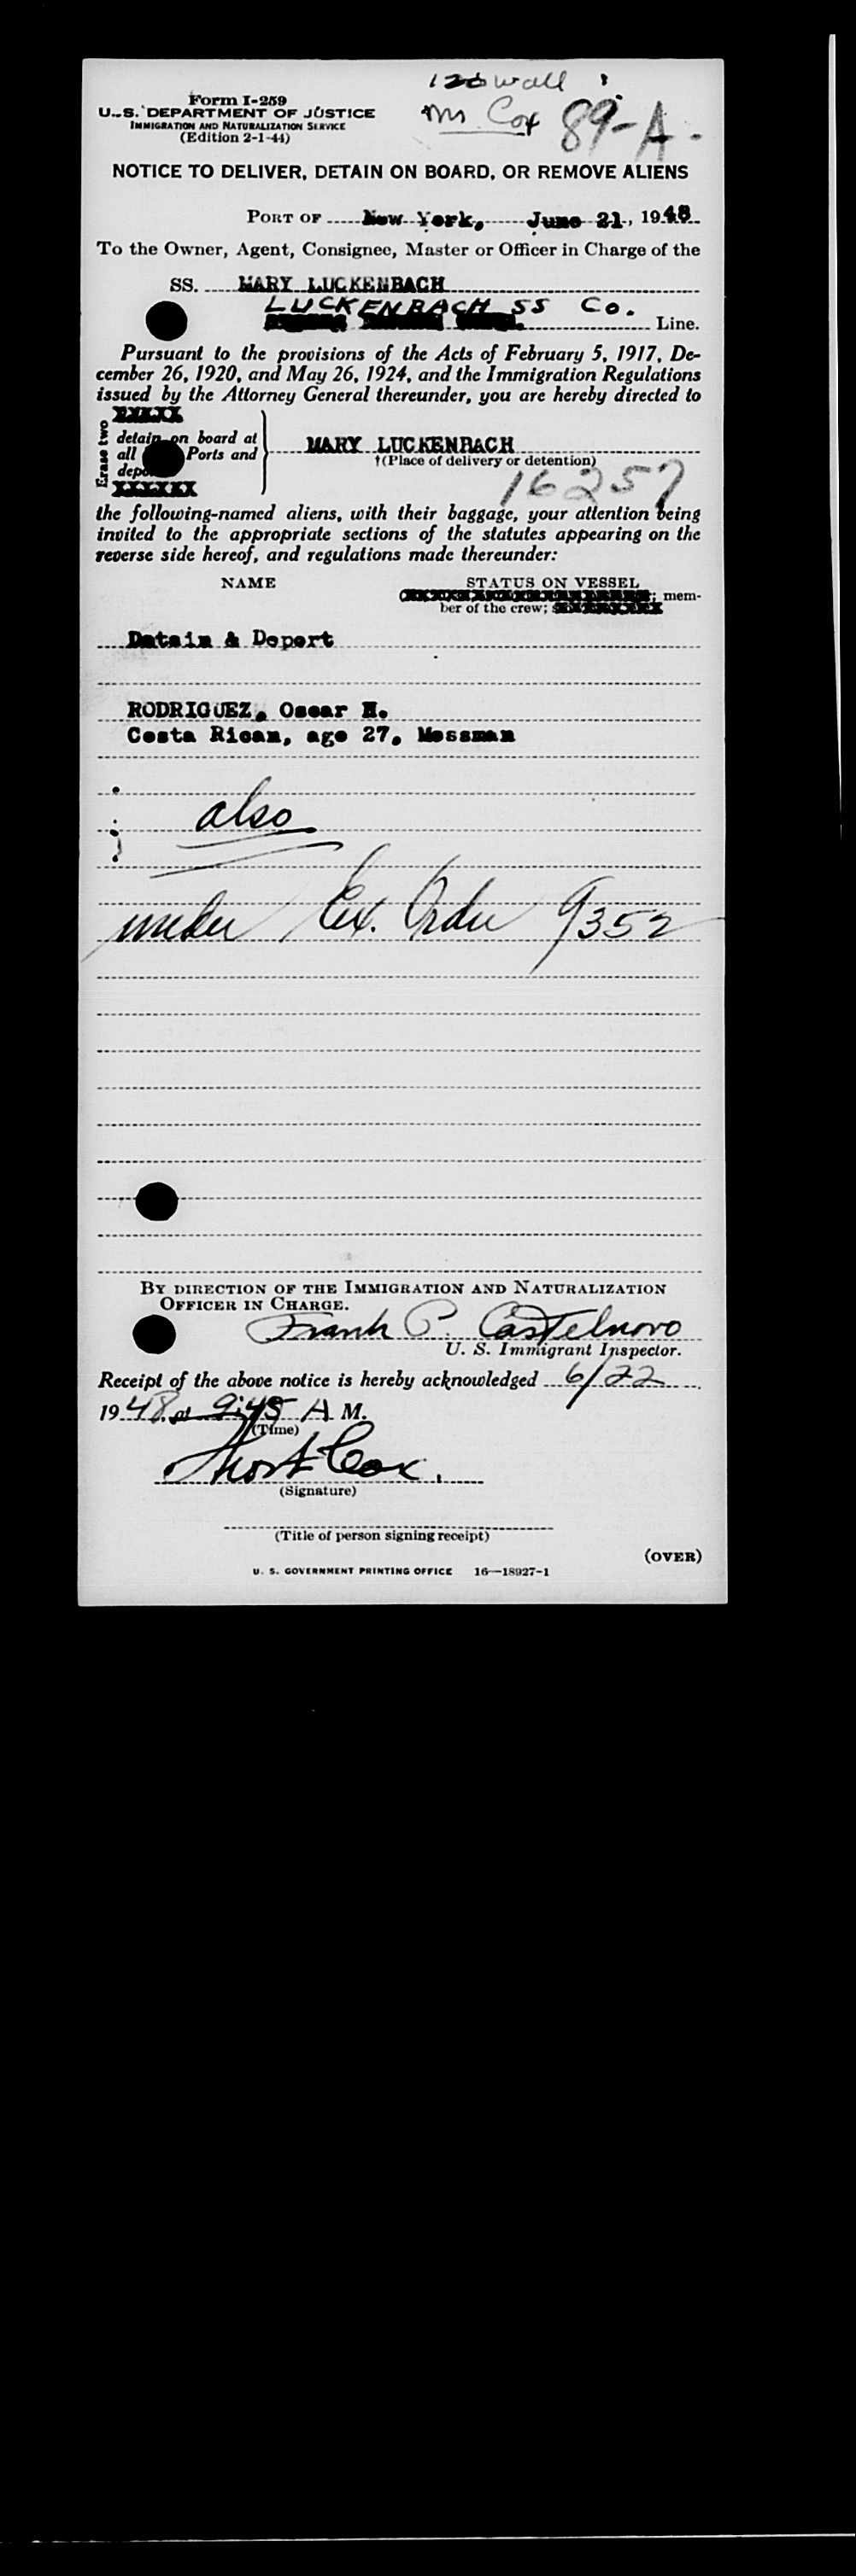 120 Wall
Mr Cox 89-A-
Form I-259
U. S. DEPARTMENT OF JUSTICE
IMMIGRATION AND NATURALIZATION SERVICE
(Edition 2-1-44)
NOTICE TO DELIVER, DETAIN ON BOARD, OR REMOVE ALIENS
PORT OF New York, June 21, 1948
To the Owner, Agent, Consignee, Master or Officer in Charge of the
SS. MARY LUCKENBACH
LUCKENBACH SS Co.
Line.
Pursuant to the provisions of the Acts of February 5, 1917, De-
cember 26, 1920, and May 26, 1924, and the Immigration Regulations
issued by the Attorney General thereunder, you are hereby directed to
Erase two
detain on board at
all Ports and
MARY LUCKENBACH
†(Place of delivery or detention)
16257
the following-named aliens, with their baggage, your attention being
invited to the appropriate sections of the statutes appearing on the
reverse side hereof, and regulations made thereunder:
NAME STATUS ON VESSEL
; mem-
ber of the crew;
Detain & Deport
RODRIGUEZ, Oscar H.
Costa Rican, age 27, Messman
also
under Ex. Order 9352
BY DIRECTION OF THE IMMIGRATION AND NATURALIZATION
OFFICER IN CHARGE.
Frank P. Castelnovo
U. S. Immigrant Inspector.
Receipt of the above notice is hereby acknowledged 6/22
1948 at 9:45 A M.
(Time)
Cox.
(Signature)
(Title of person signing receipt)
(OVER)
U. S. GOVERNMENT PRINTING OFFICE 16—18927-1